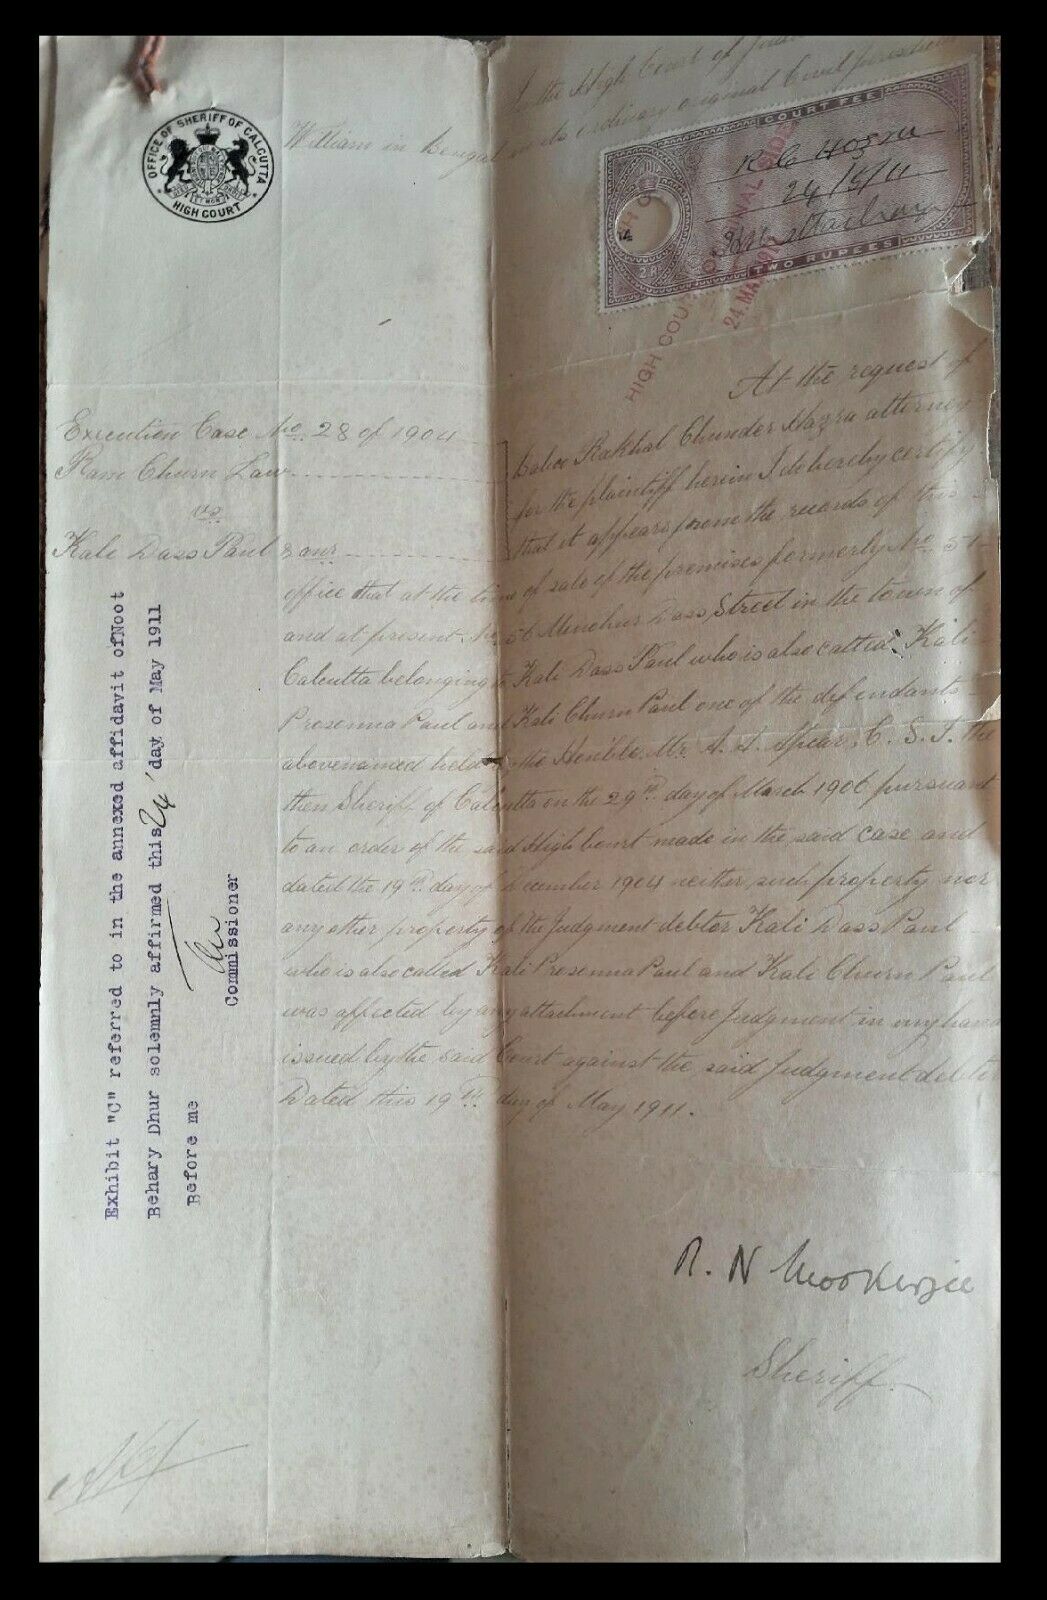 OFFICE OF SHERIFF OF CALCUTTA
HIGH COURT
In the High Court of
William in Bengal in its ordinary original Civil jurisdiction
COURT FEE
24/5/11
TWO RUPEES
2R
HIGH COURT
ORIGINAL SIDE
24 MAY 1911
At the request of
Execution Case No. 28 of 1904
baboo Rakhal Chunder Hazra attorney
Ram Churn Law
for the plaintiff herein I do hereby certify
vs
that it appears from the records of this
Kali Dass Paul & anr
office that at the time of sale of the premises formerly No. 51
and at present No. 56 Monohur Dass Street in the town of
Calcutta belonging to Kali Dass Paul who is also called Kali
Prosenna Paul and Kali Churn Paul one of the defendants
abovenamed held by the Hon'ble Mr. A. A. Apcar, C. S. I. the
then Sheriff of Calcutta on the 29th day of March 1906 pursuant
to an order of the said High Court made in the said case and
dated the 19th day of December 1904 neither such property nor
any other property of the Judgment debtor Kali Dass Paul
who is also called Kali Prosenna Paul and Kali Churn Paul
was affected by any attachment before Judgment in my hand
issued by the said Court against the said Judgment debtor
Dated this 19th day of May 1911.
R. N Mookerjee
Sheriff
Exhibit "C" referred to in the annexed affidavit ofNoot
Behary Dhur solemnly affirmed this 24 day of May 1911
Before me
Commissioner